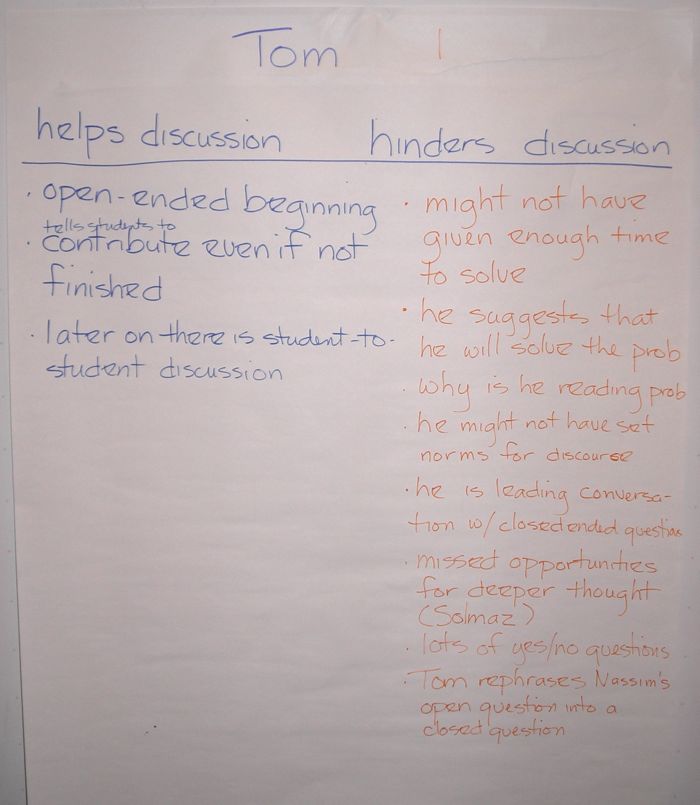 Tom 1
helps discussion
hinders discussion
· open-ended beginning
tells students to
· contribute even if not
finished
· later on there is student-to-
student discussion
· might not have
given enough time
to solve
· he suggests that
he will solve the prob
· why is he reading prob
· he might not have set
norms for discourse
· he is leading conversa-
tion w/ closed ended questions
· missed opportunities
for deeper thought
(Solmaz)
· lots of yes/no questions
· Tom rephrases Nassim's
open question into a
closed question